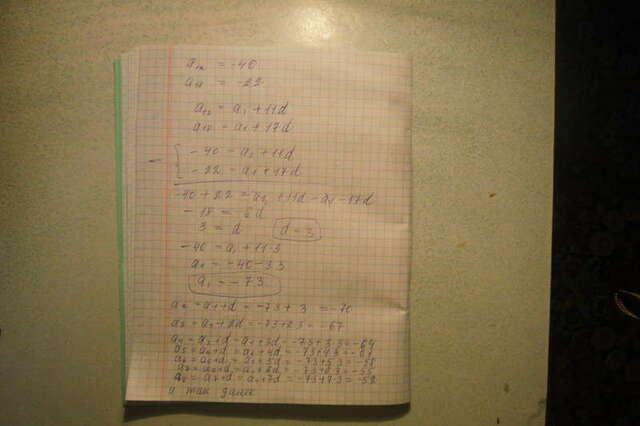 a₁₂ = -40
a₁₈ = -22
a₁₂ = a₁ + 11d
a₁₈ = a₁ + 17d
- 40 = a₁ + 11d
- 22 = a₁ + 17d
-40 + 22 = a₁ + 11d - a₁ - 17d
- 18 = - 6d
3 = d d = 3
-40 = a₁ + 11·3
a₁ = -40 - 33
a₁ = - 73
a₂ = a₁ + d = -73 + 3 = -70
a₃ = a₁ + 2d = -73 + 2·3 = -67
a₄ = a₃ + d = a₁ + 3d = -73 + 3·3 = -64
a₅ = a₄ + d = a₁ + 4d = -73 + 4·3 = -61
a₆ = a₅ + d = a₁ + 5d = -73 + 5·3 = -58
a₇ = a₆ + d = a₁ + 6d = -73 + 6·3 = -55
a₈ = a₇ + d = a₁ + 7d = -73 + 7·3 = -52
и так далее